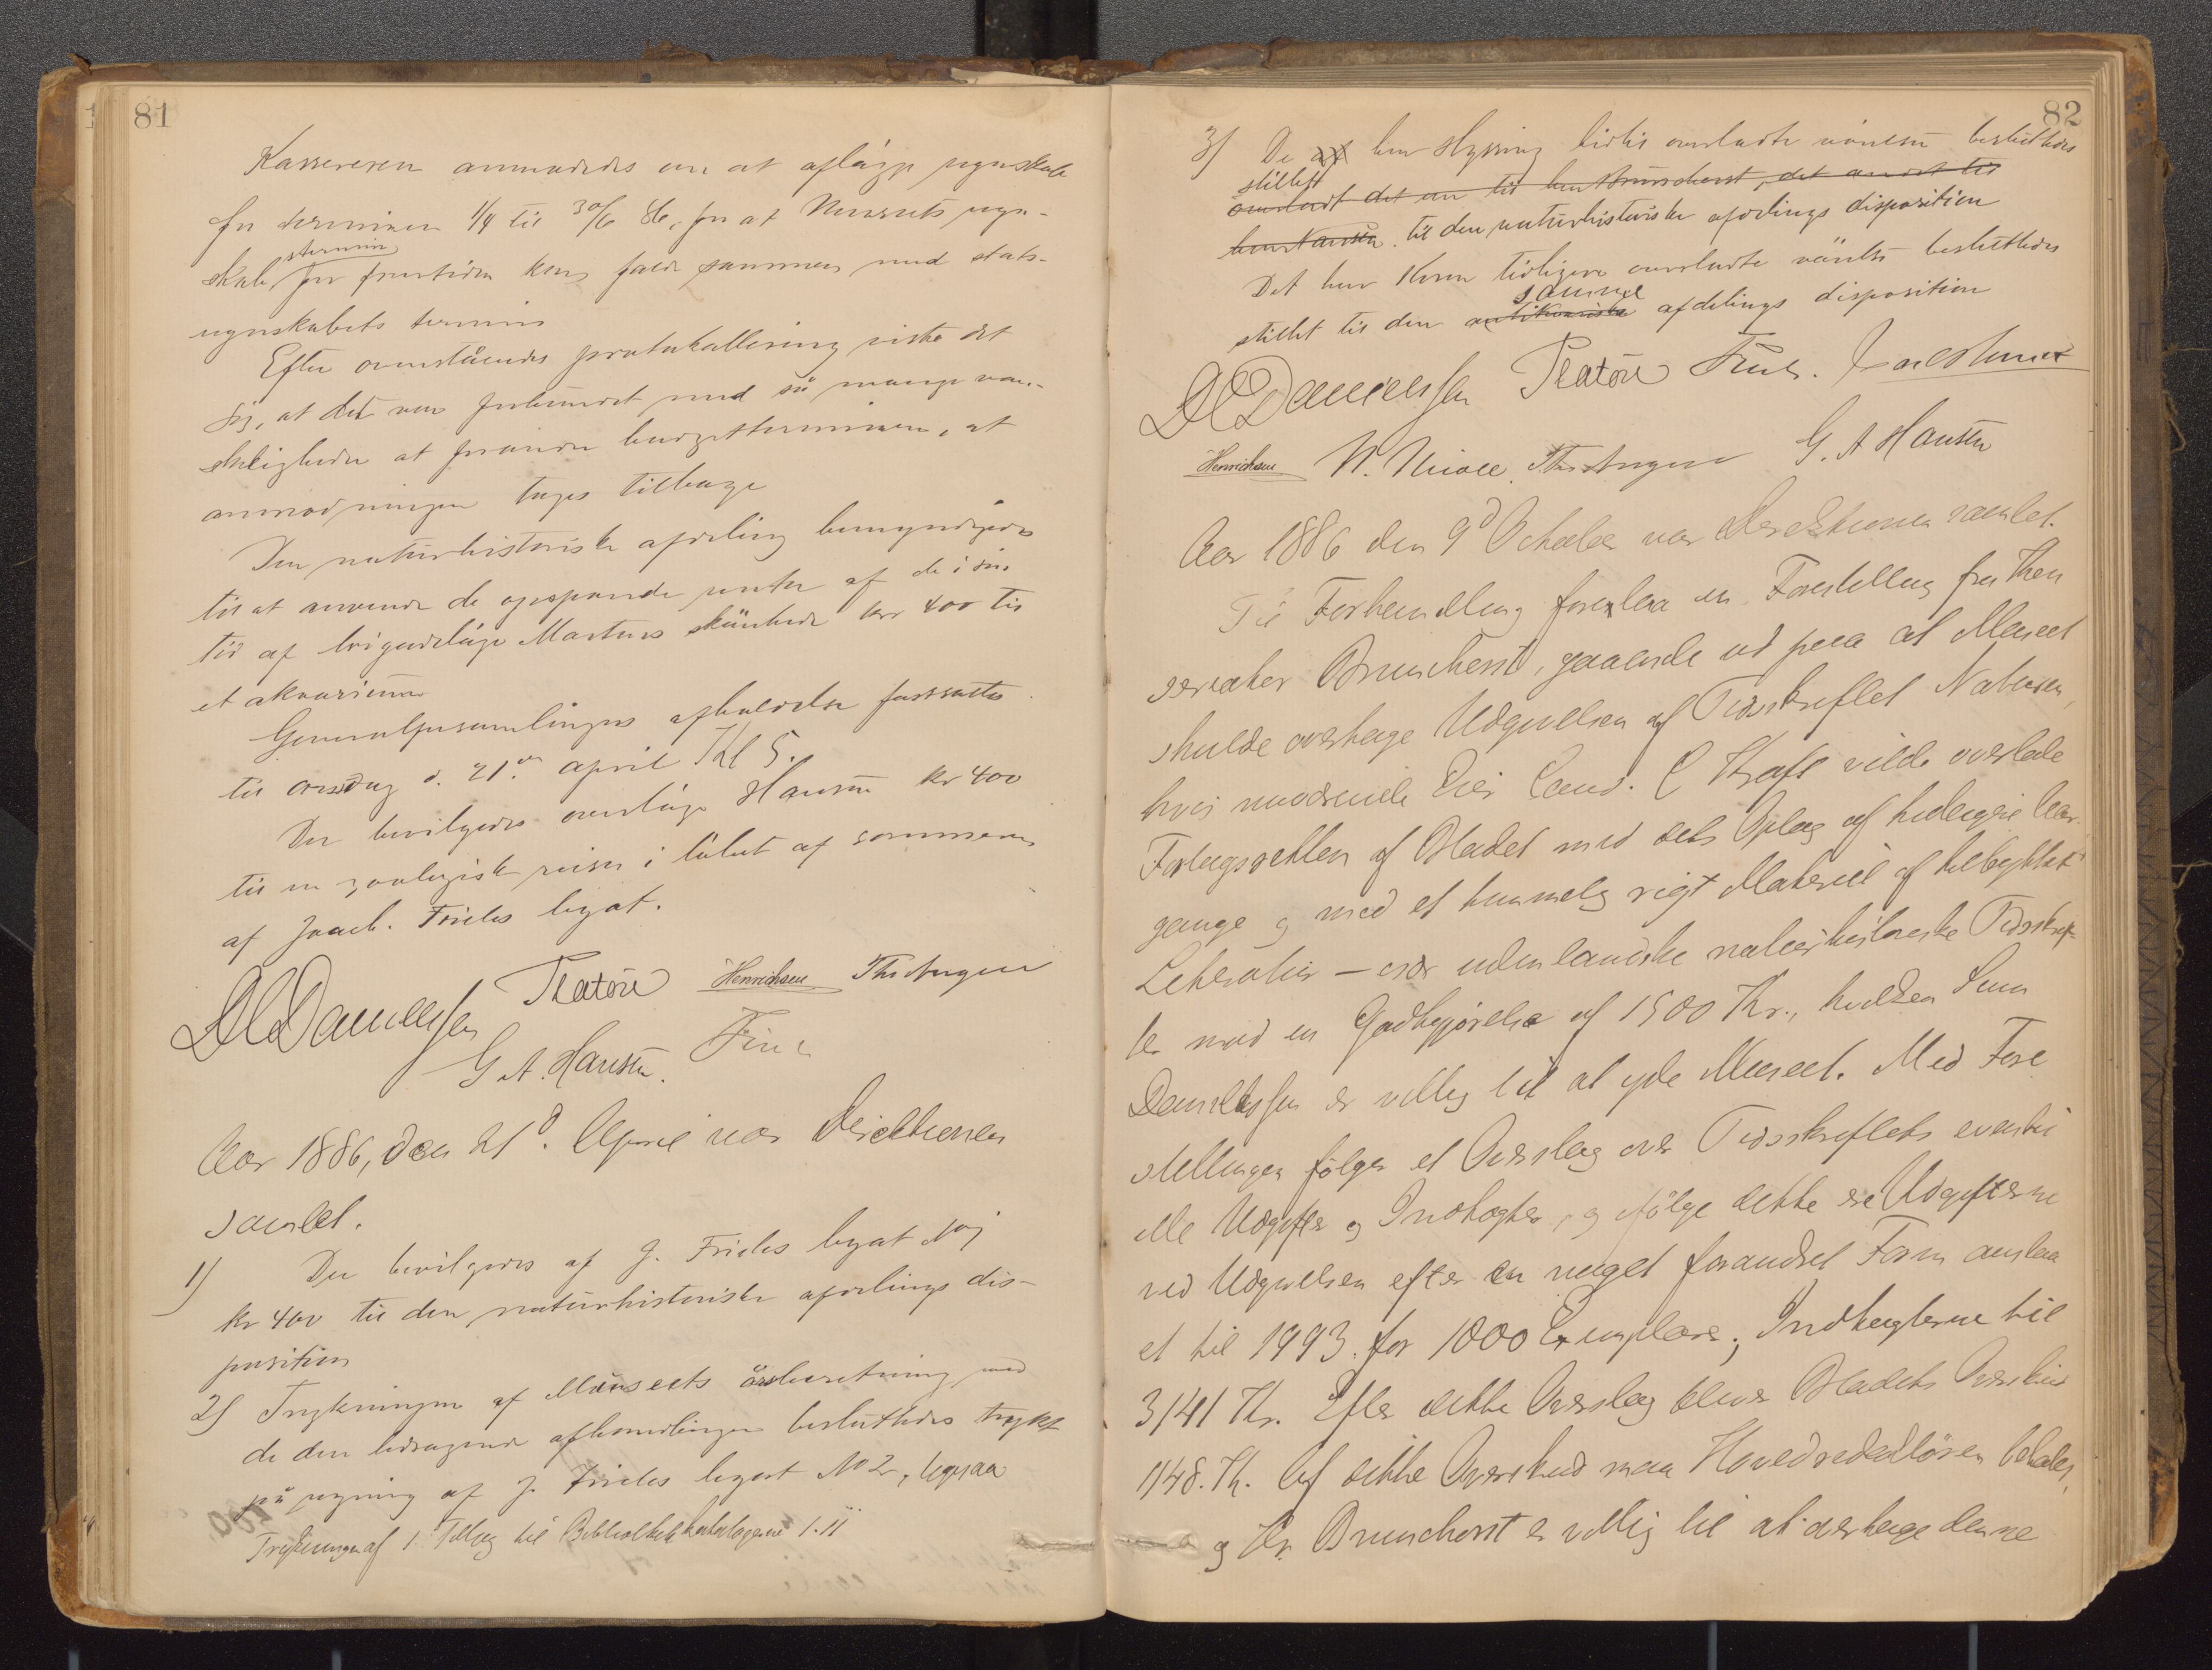 81
Kassereren anmodedes om at aflägge regnskab
for terminen 1/4 til 30/6 86, for at Museets regn-
termin
skab for fremtiden kan falde sammen med stats-
regnskabets termin
Efter ovenståendes protokollering viste det
sig, at det var forbundet med så mange van-
skeligheder at forandre budgetterminen, at
anmodningen tages tilbage
Den naturhistoriske afdeling bemyndigedes
til at anvende de opsparede renter af de i sin
tid af brigadeläge Martens skänkede kr 400 til
et akvarium
Generalforsamlingens afholdelse fastsattes
til onsdag d. 21de april Kl 5.
Der bevilgedes overläge Hansen kr 400
til en zoologisk reise i løbet af sommeren
af Joach. Frieles legat.
DCDanielssen Platou Henrichsen
G A. Hansen. Friele
Aar 1886, den 21d. April var Direktionen
samlet.
1) Der bevilgedes af J. Frieles legat No 1
kr 400 til den naturhistoriske afdelings dis-
position
2) Trykningen af Museets årsberetning med
de den ledsagende afhandlinger besluttedes trykt
på regning af J. Frieles legat No 2, ligesaa
Trykningen af 1 Tillæg til Bibliothekskatalogerne I. II
82
3) De af herr Hysing hidtil overladte vänser besluttedes
stillet
overladt det ene til herr Brunchorst, det andet til
herr Nansen. til den naturhistoriske afdelings disposition
Det herr Koren tidligere overladte värelse besluttedes
samme
stillet til den antikvariske afdelings disposition
DCDanielssen Platou Friele.
Henrichsen G. A Hansen
Aar 1886 den 9d October var Direktionen samlet.
Til Forhandling forelaa en Forestilling fra Kon
servator Brunchorst, gaaende ud paa at Museet
skulde overtage Udgivelsen af Tidsskriftet Naturen,
hvis nuværende Eier Cand. C Krafft vilde overlade
Forlagsretten af Bladet med dets Oplag af tidligere Aar-
gange og med et temmelig rigt Materiel af tilbyttet
Literatur – især udenlandske naturhistoriske Tidsskrif-
ter mod en Godtgjørelse af 1500 Kr., hvilken Sum
Danielssen er villig til at yde Museet. Med Fore
stillingen følger et Overslag over Tidsskriftets eventu
elle Udgifter og Indtægter, og ifølge dette ere Udgifterne
ved Udgivelsen efter en noget forandret Form anslaa
et til 1993. for 1000 Exemplarer; Indtægterne til
3141 Kr. Efter dette Overslag bliver Bladets Overskud
1148. Kr. Af dette Overskud maa Hovedredaktøren betales,
og Hr. Brunchorst er villig til at overtage denne